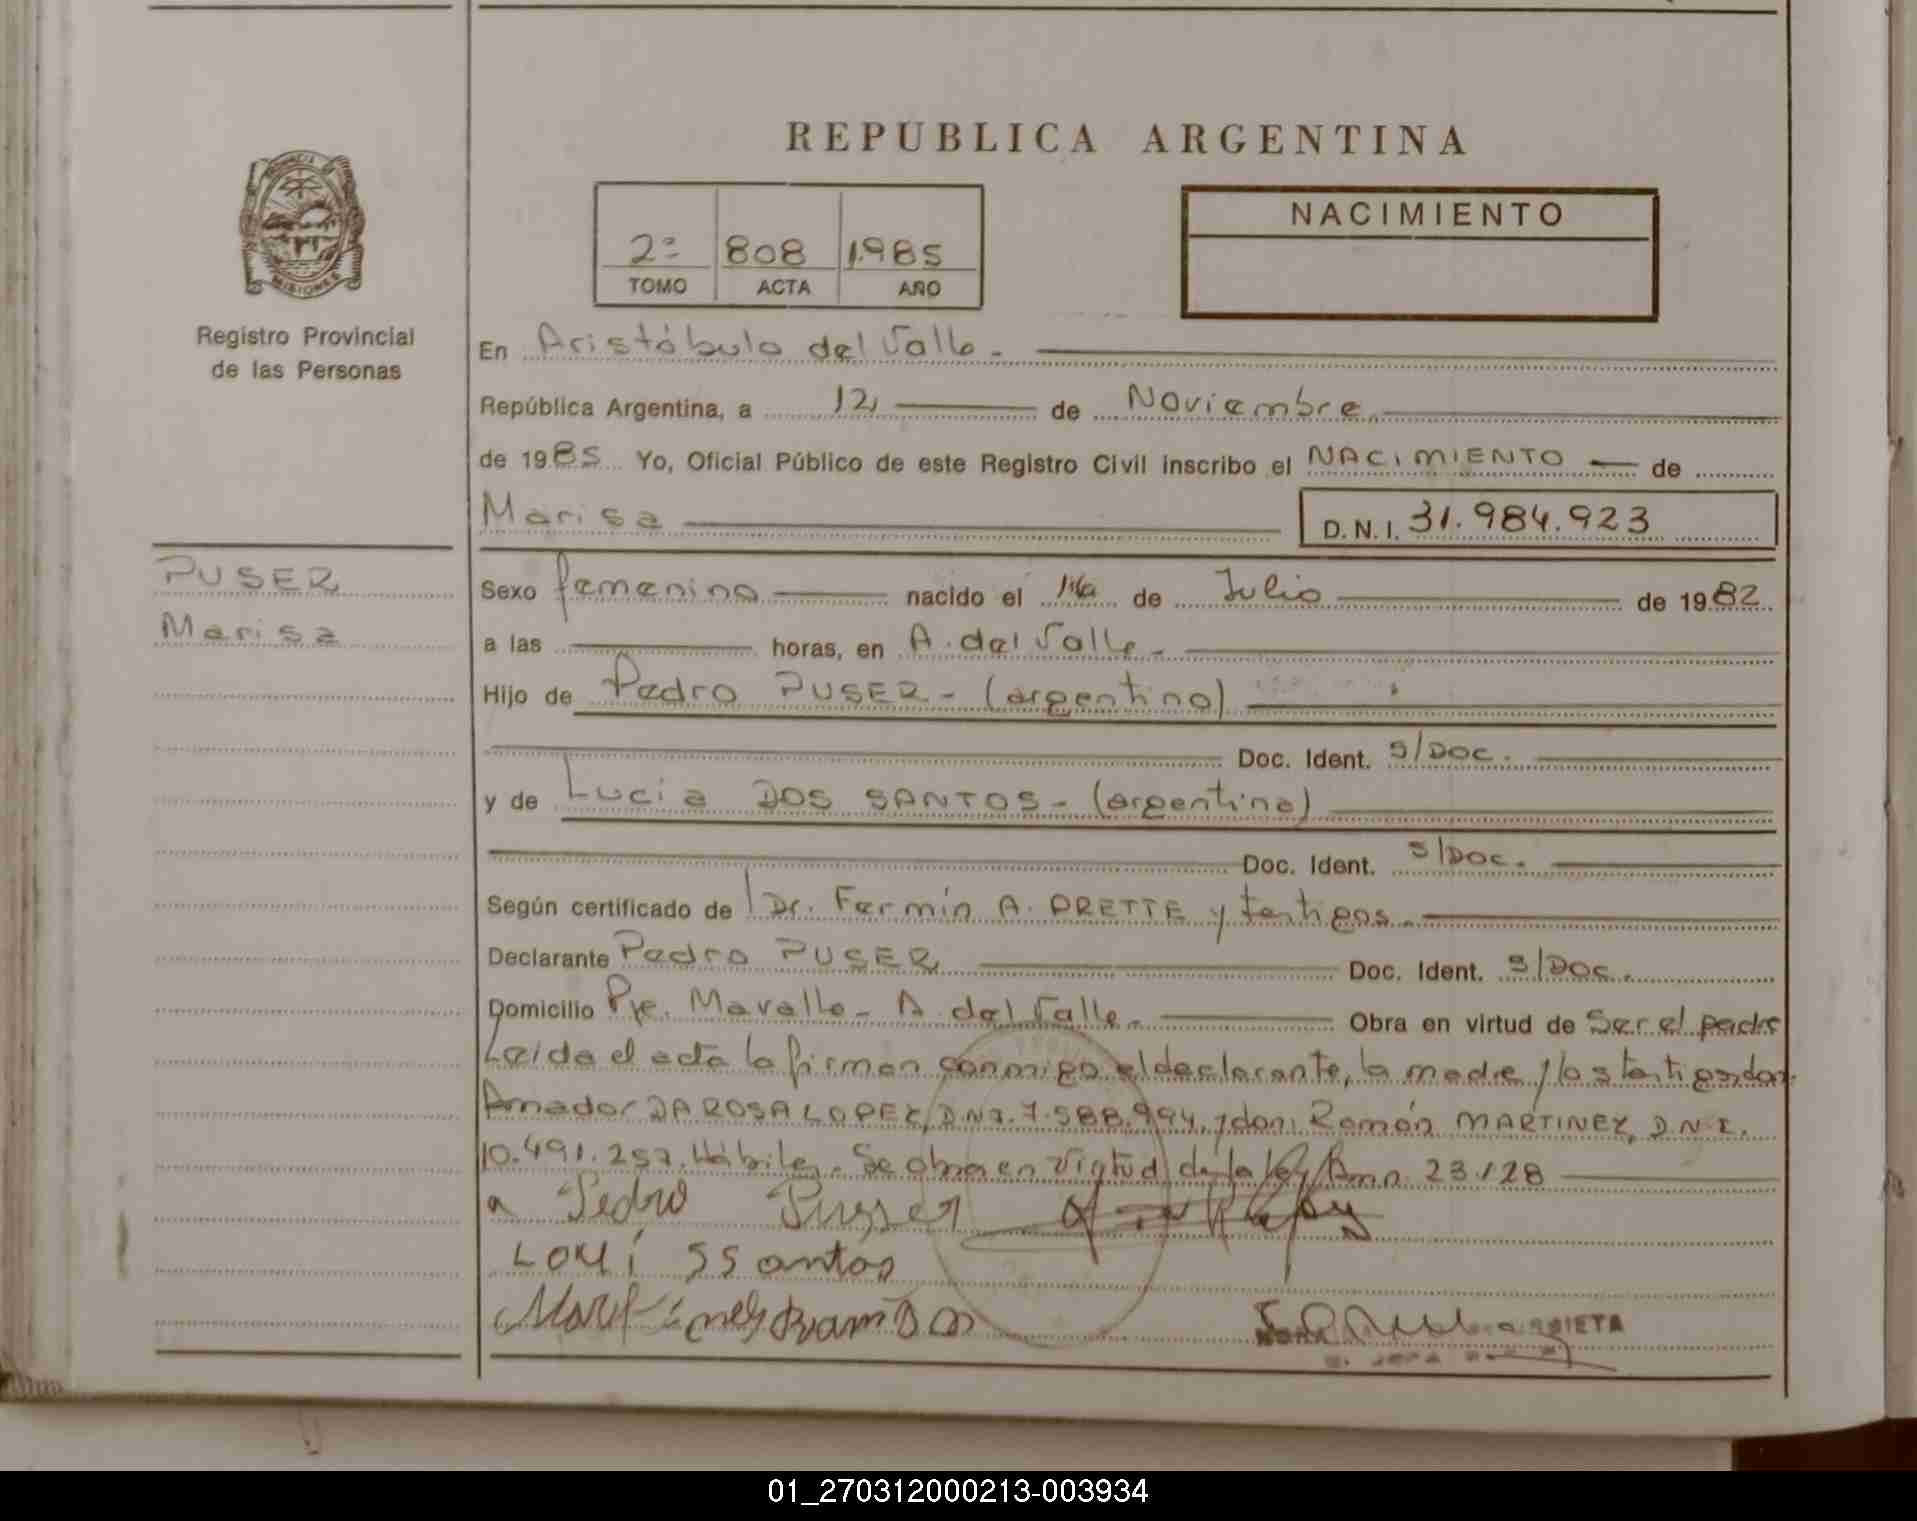 REPUBLICA ARGENTINA
2º 808 1.985
TOMO ACTA AÑO
NACIMIENTO
MISIONES
Registro Provincial
de las Personas
En Aristóbulo del Valle.-
República Argentina, a 12, de Noviembre,
de 1985 Yo, Oficial Público de este Registro Civil inscribo el NACIMIENTO de
Marisa D.N.I. 31.984.923
PUSER
Marisa
Sexo femenino nacido el de Julio de 1982
a las horas, en A. del Valle.-
Hijo de Pedro PUSER-(argentino)
Doc. Ident. S/Doc.
y de Lucia DOS SANTOS-(argentina)
Doc. Ident. S/Doc.
Según certificado de Dr. Fermín A. PRETTE y testigos.-
Declarante Pedro PUSER Doc. Ident. S/Doc.
Domicilio Pje. Mavalle- A. del Valle.- Obra en virtud de Ser el padre
Leida el acta la firman conmigo el declarante, la madre y los testigos don:
Amador DA ROSA LOPEZ, D.N.I. 7.588.994, y don: Ramón MARTINEZ, D.N.I.
10.491.257. Hábiles.- Se obra en virtud de la ley Amn. 23.128
a Pedro Pusser
Santos
Martines Ramon
NORA